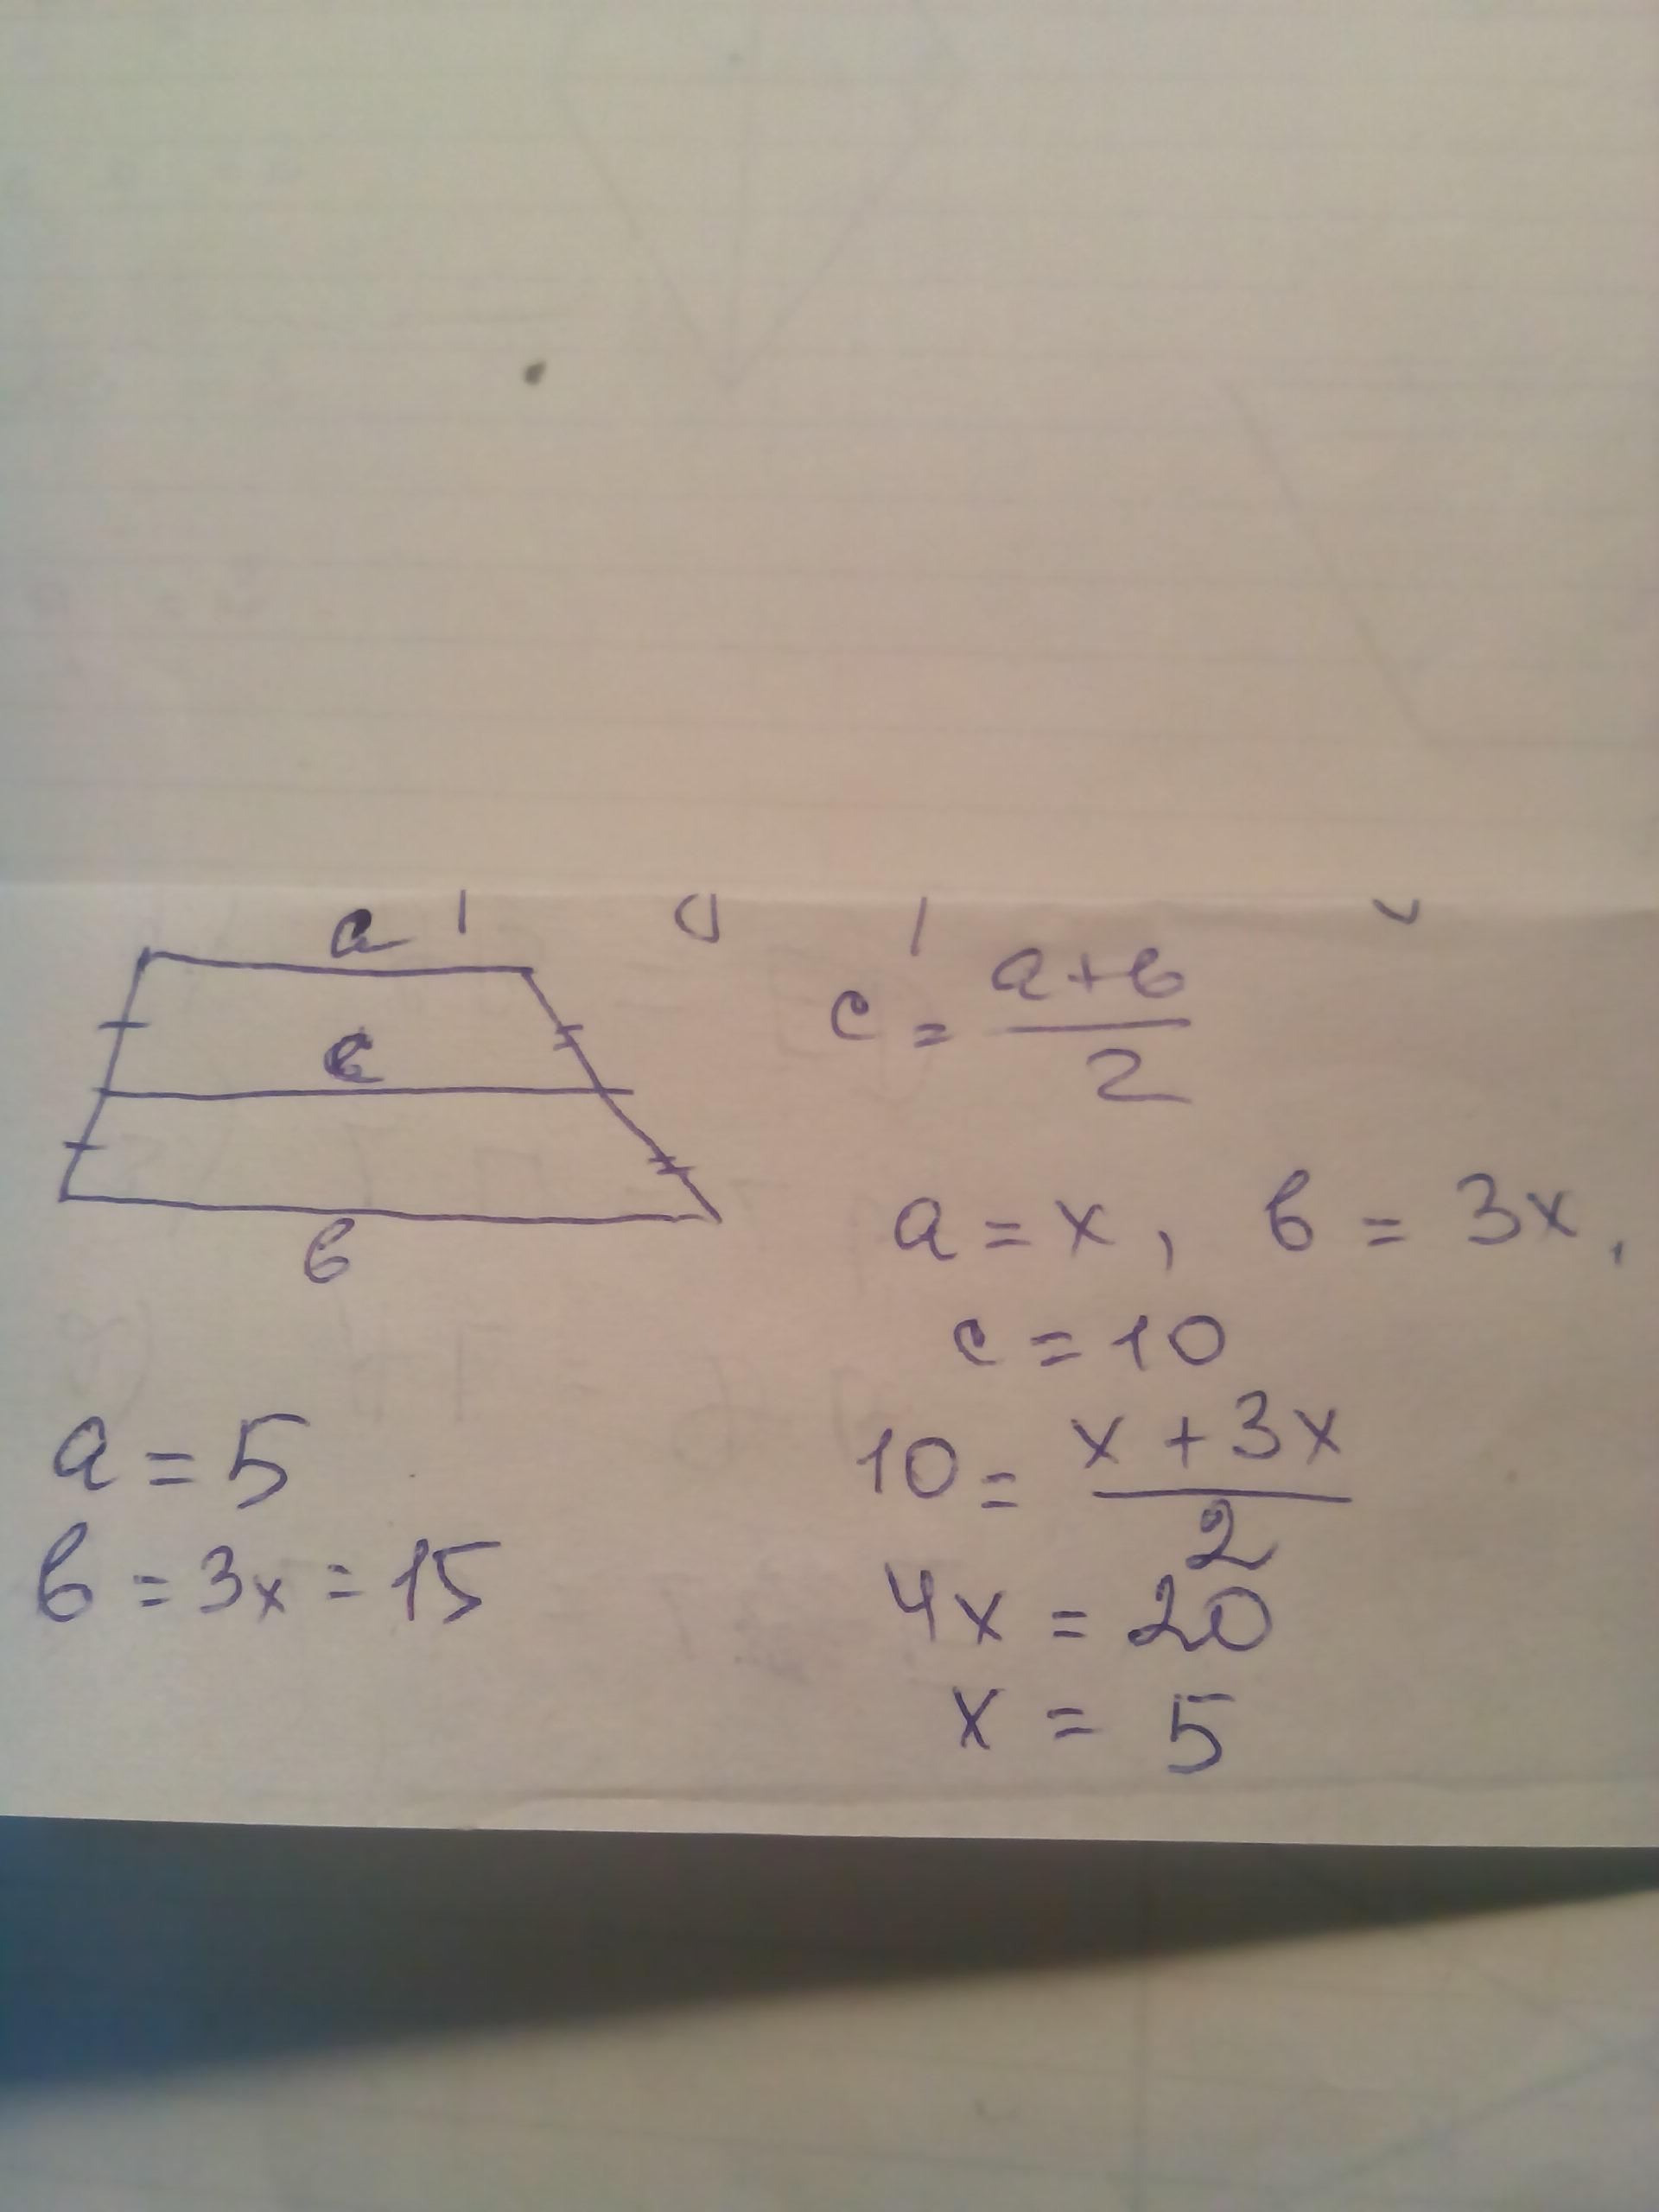 a
c
в
c = a+в
2
a = x, в = 3x,
c = 10
10 = x + 3x
2
4x = 20
x = 5
a = 5
в = 3x = 15